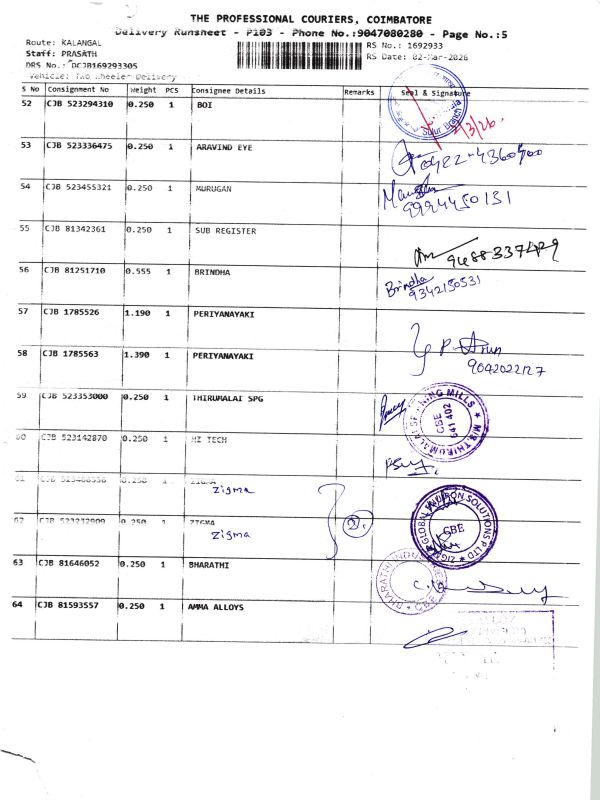 THE PROFESSIONAL COURIERS, COIMBATORE
Delivery Runsheet - P103 - Phone No.:9047080280 - Page No.:5
Route: KALANGAL
RS No.: 1692933
Staff: PRASATH
RS Date: 02-Mar-2026
DRS No.: DCJB169293305
Vehicle: Two Wheeler Delivery
S No Consignment No Weight PCS Consignee Details Remarks Seal & Signature
52 CJB 523294310 0.250 1 BOI
Sulur Branch
2/3/26
53 CJB 523336475 0.250 1 ARAVIND EYE 0422-4360400
54 CJB 523455321 0.250 1 MURUGAN 9994450131
55 CJB 81342361 0.250 1 SUB REGISTER 9488337429
56 CJB 81251710 0.555 1 BRINDHA Brindha
9342150531
57 CJB 1785526 1.190 1 PERIYANAYAKI
P. Arun
58 CJB 1785563 1.390 1 PERIYANAYAKI 9042022127
59 CJB 523353000 0.250 1 THIRUMALAI SPG
M/S. THIRUMALAI SPINNING MILLS
CBE
641 402
60 CJB 523142870 0.250 1 HI TECH
61 0.250 1 ZIGMA
Zigma
62 CJB 523232909 0.250 1 ZIGMA
Zigma
2.
CBE
63 CJB 81646052 0.250 1 BHARATHI
BHARATHI CBE
64 CJB 81593557 0.250 1 AMMA ALLOYS